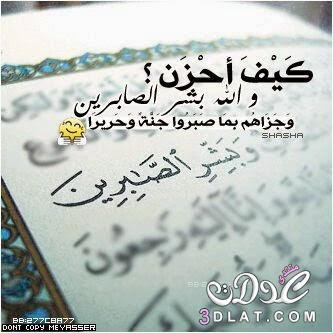 كَيْفَ أحْزَن ؟
و الله بشر الصابرين
وَجَزَاهُم بِمَا صَبَرُوا جَنَّةً وَحَرِيرًا
SHASHA
وَبَشِّرِ ٱلصَّٰبِرِينَ
عدلات
3DLAT.COM
BB:277CBA77
DONT COPY MEYASSER